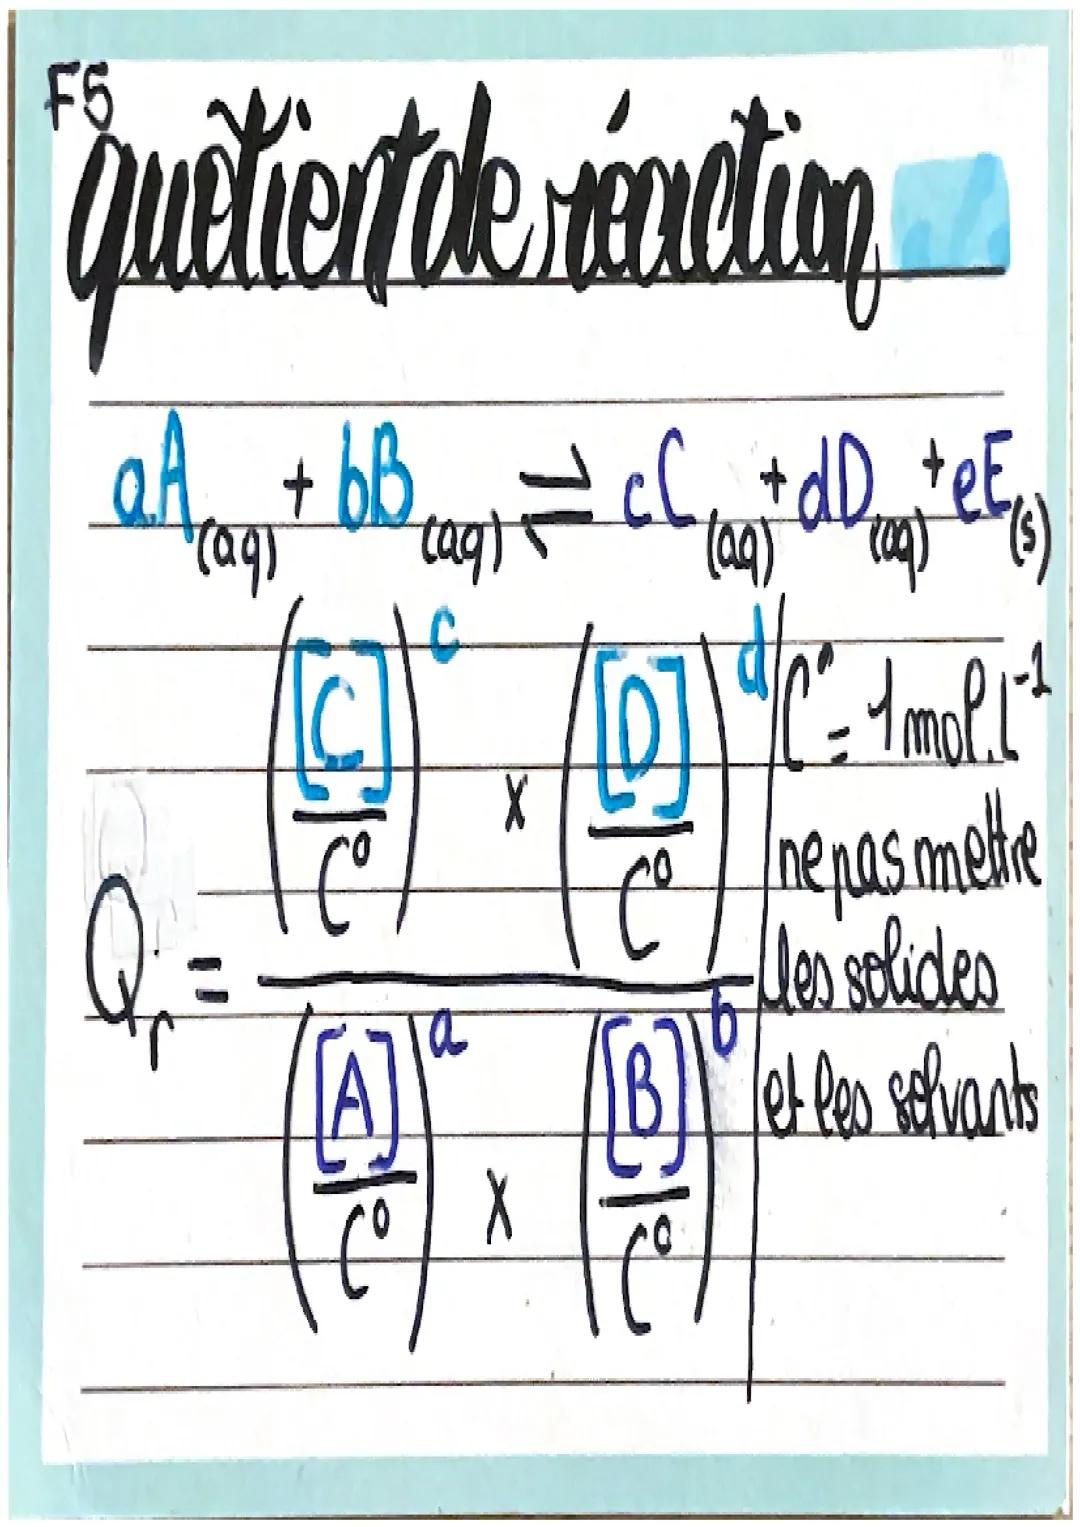 F5
quotient de réaction
aA(aq) + bB(aq) ⇌ cC(aq) + dD(aq) + eE(s)
Qr = (([C]/C⁰)^c × ([D]/C⁰)^d) / (([A]/C⁰)^a × ([B]/C⁰)^b)
C° = 1 mol.L⁻¹
ne pas mettre
les solides
et les solvants